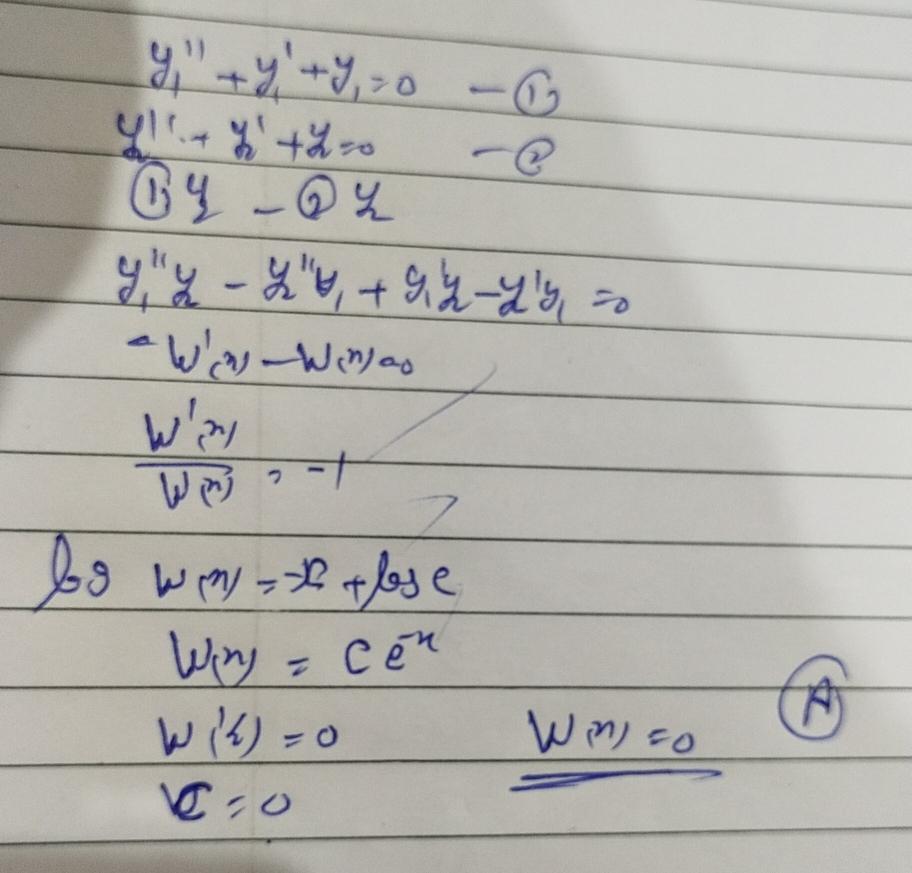 y₁'' + y₁' + y₁ = 0 — ①
y₂'' + y₂' + y₂ = 0 — ②
① y₂ — ② y₁
y₁''y₂ - y₂''y₁ + y₁'y₂ - y₂'y₁ = 0
- W'(x) - W(x) = 0
W'(x)/W(x) = -1
log W(x) = -x + log c
W(x) = C e⁻ˣ
W(½) = 0 W(x) = 0 Ⓐ
C = 0